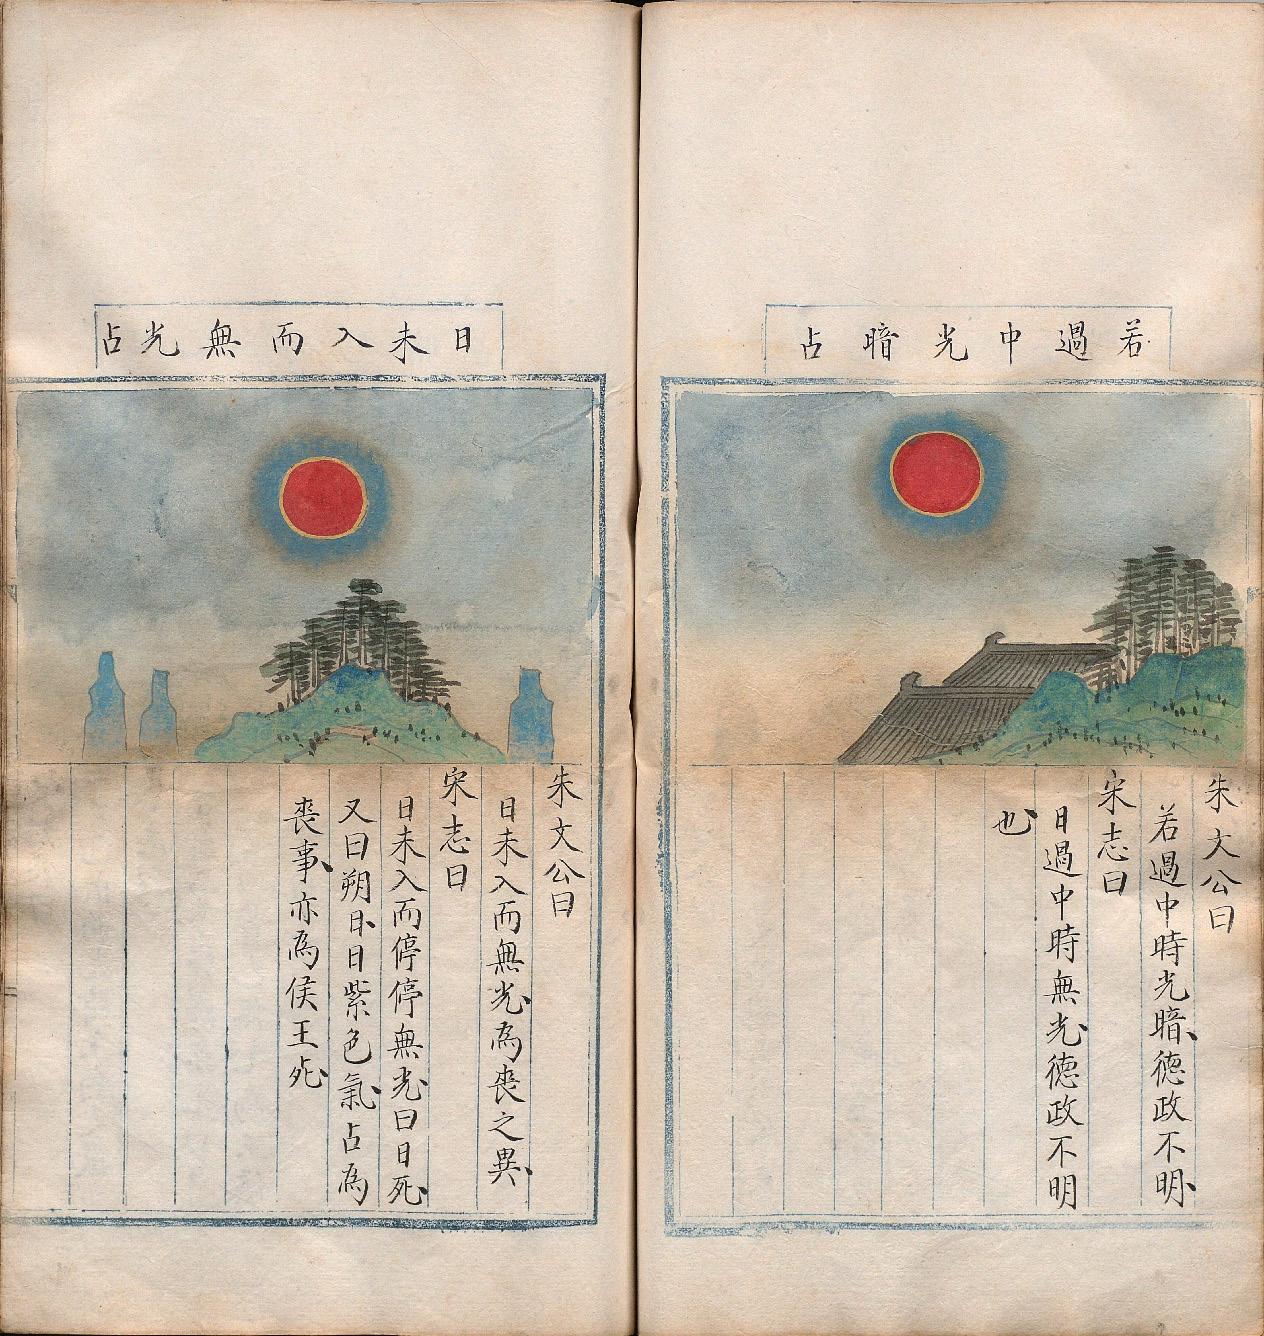 若過中光暗占
朱文公曰
若過中時光暗、德政不明、
宋志曰
日過中時無光、德政不明
也、
日未入而無光占
朱文公曰
日未入而無光、為喪之異、
宋志曰
日未入而停停無光、曰日死、
又曰朔日、日紫色氣、占為
喪事、亦為侯王死、